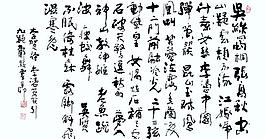 吳絲蜀桐張高秋空
山凝雲頹不流江娥啼
竹素女愁李憑中國
彈箜篌崑山玉碎鳳
凰叫芙蓉泣露香蘭笑
十二門前融冷光二十三絲
動紫皇女媧煉石補天處
石破天驚逗秋雨夢入
神山教神嫗老魚跳
波瘦蛟舞吳質
不眠倚桂樹露腳斜飛
濕寒兔
李憑箜篌引